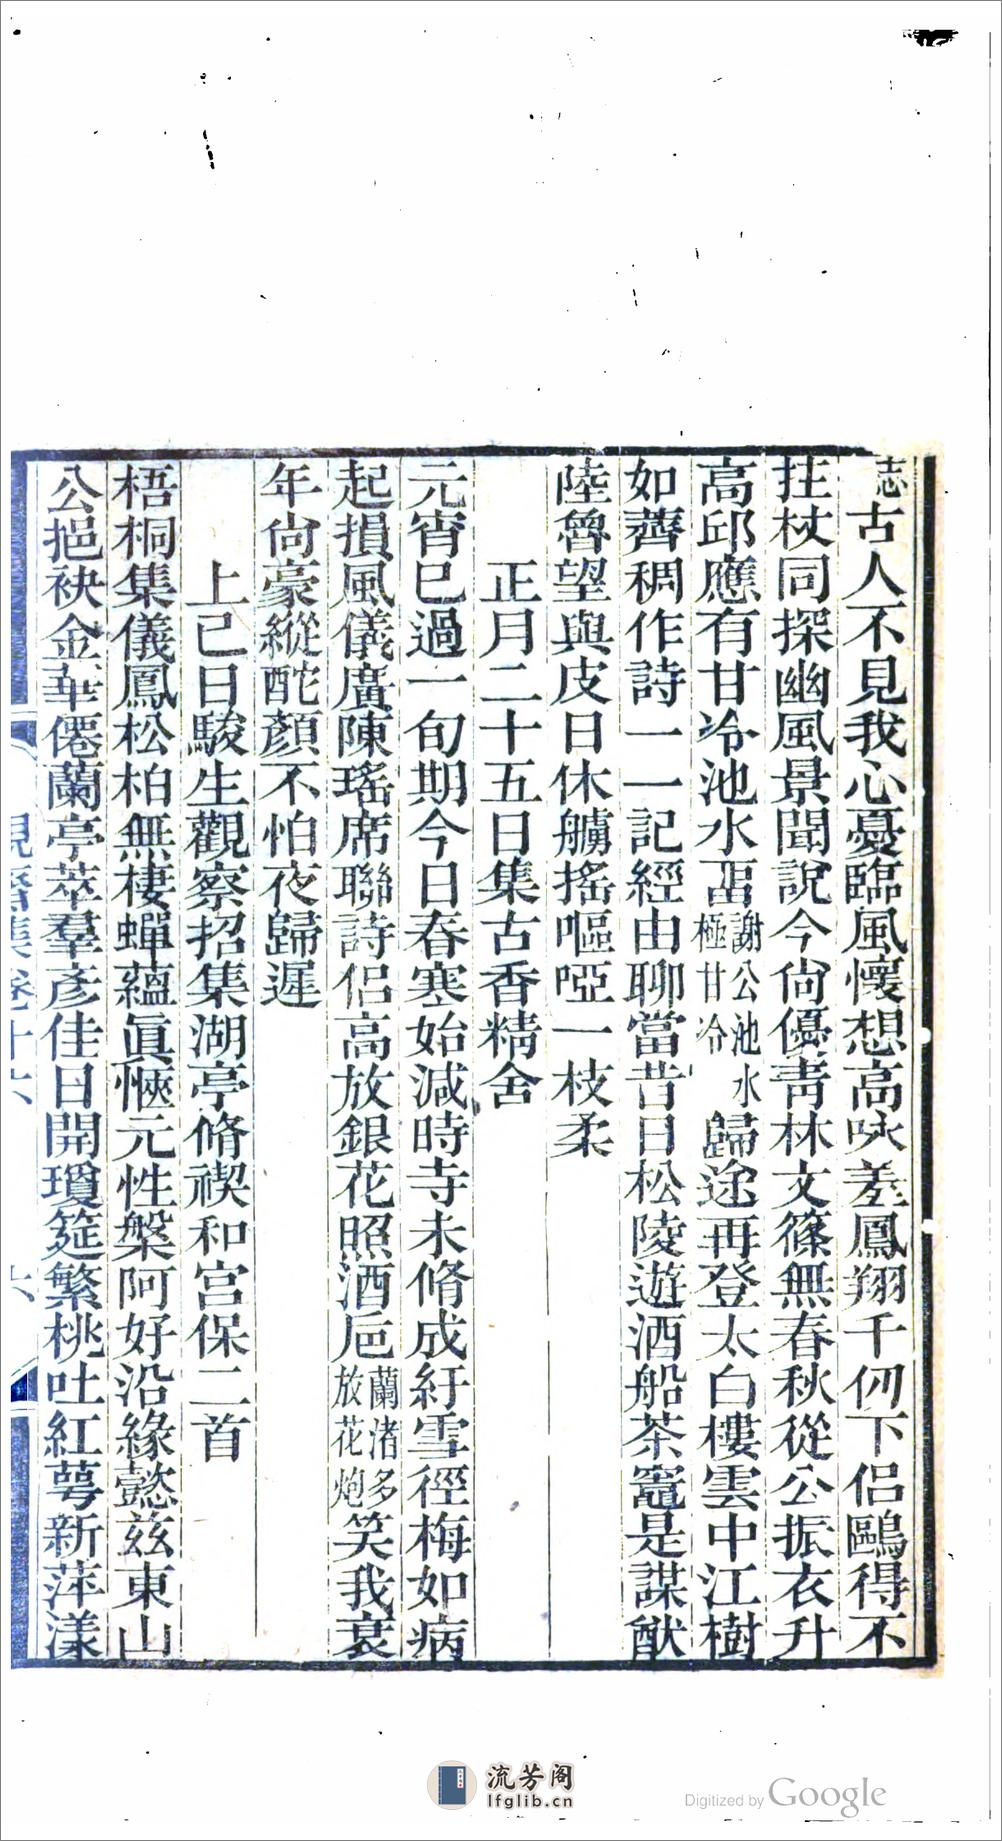 志古人不見我心憂臨風懷想高咏差鳳翔千仞下侶鷗得不
拄杖同探幽風景聞說今尙優靑林文篠無春秋從公振衣升
高邱應有甘冷池水畱謝公池水極甘冷歸途再登太白樓雲中江樹
如薺稠作詩一一記經由聊當昔日松陵遊酒船茶竈是謀猷
陸魯望與皮日休艣搖嘔啞一枝柔
正月二十五日集古香精舍
元宵已過一旬期今日春寒始減時寺未脩成紆雪徑梅如病
起損風儀廣陳瑤席聯詩侶高放銀花照酒巵蘭渚多放花炮笑我衰
年尙豪縱酡顏不怕夜歸遲
上巳日駿生觀察招集湖亭脩禊和宮保二首
梧桐集儀鳳松柏無棲蟬蘊眞愜元性槃阿好沿緣懿茲東山
公挹袂金華僊蘭亭萃羣彥佳日開瓊筵繁桃吐紅萼新萍漾
集卷十六
六
流芳阁
lfglib.cn
Digitized by Google